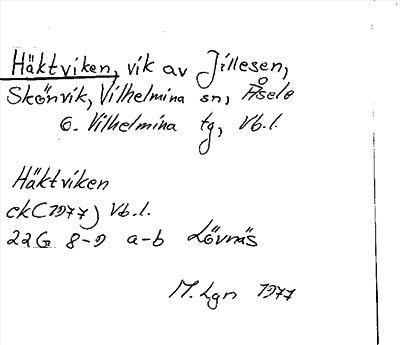 Häktviken, vik av Jillesen,
Skönvik, Vilhelmina sn, Åsele
o. Vilhelmina tg, Vb.l.
Häktviken
ek(1977) Vb.l.
22G 8-9 a-b Lövnäs
M. Lgn 1977